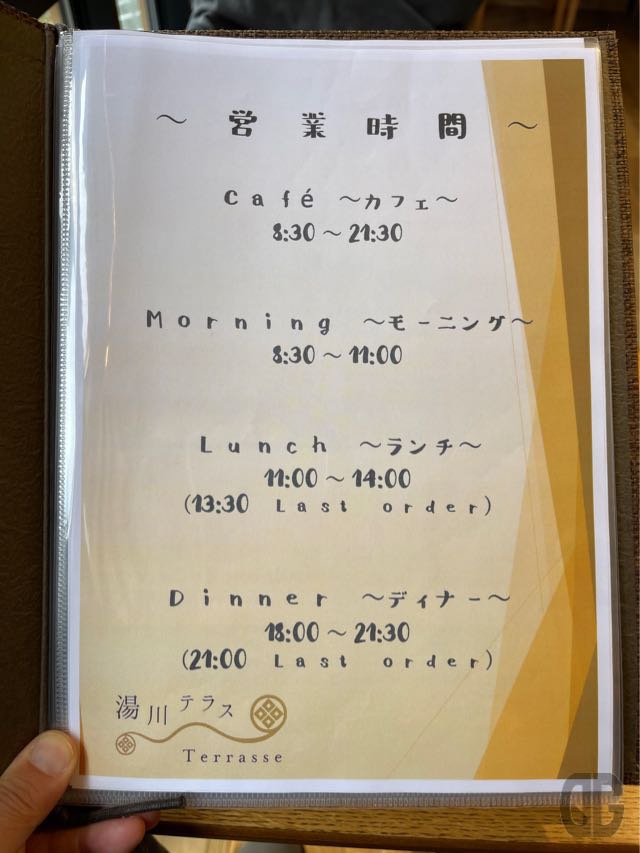 ～営業時間～
Café ～カフェ～
8:30～21:30
Morning ～モーニング～
8:30～11:00
Lunch ～ランチ～
11:00～14:00
(13:30 Last order)
Dinner ～ディナー～
18:00～21:30
(21:00 Last order)
湯川テラス
Terrasse